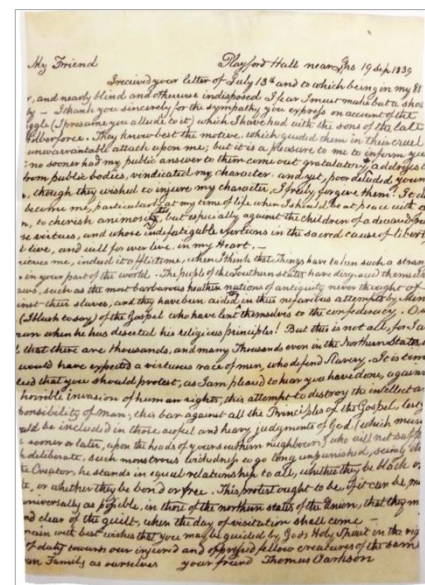 My Friend Playford Hall near Ips 19 sep. 1839
I received your letter of July 13th and to which being in my 81
r, and nearly blind and otherwise indisposed I fear I must make but a shor
ly — I thank you sincerely for the sympathy you express on account of the
uggle (I presume you allude to it) which I have had with the sons of the late
ilberforce. They know best the motive, which guided them in their cruel
unwarrantable attack upon me; but it is a pleasure to me to inform you
no sooner had my public answer to them come out gratulatory addresses c
from public bodies, vindicated my character. and yet, poor deluded youn
, though they wished to injure my character, I freely forgive them. It d
become me, particularly at my time of life when I should be at peace with a
n, to cherish animosity, but especially against the children of a deceased
se virtues, and whose indefatigable exertions in the sacred cause of liberty
l live, and will for ever live, in my Heart. —
ieves me, indeed it afflicts me, when I think that things have taken such a stran
in your part of the world. The people of the Southern states have disgraced themsel
aws, such as the most barbarous heathen nations of antiquity never thought of
inst their slaves, and they have been aided in this nefarious attempt by Men
(I blush to say) of the Gospel who have lent themselves to the confederacy.
man when he has deserted his religious principles! But this is not all, for I a
that there are thousands, and many Thousands even in the Northern States
would have expected a virtuous race of men, who defend Slavery. It is tim
deed that you should protest, as I am pleased to hear you have done, agains
horrible invasion of human rights, this attempt to destroy the intellect a
ponsibility of man; this bar against all the Principles of the Gospel, lest y
uld be included in those awful and heavy judgments of God (which must
sooner or later, upon the heads of your southern neighbours) who will not suff
deliberate, such monstrous wickedness to go long unpunished, seeing th
e Creator, he stands in equal relationship to all, whether they be black o
te, or whether they be bond or free. This protest ought to be, if it can be, m
niversally as possible, in those of the northern states of the Union, that they m
nd clear of the guilt, when the day of visitation shall come —
main with best wishes that you may be guided by Gods Holy Spirit in the rig
of duty towards our injured and oppressed fellow creatures of the same
an Family as ourselves your friend Thomas Clarkson